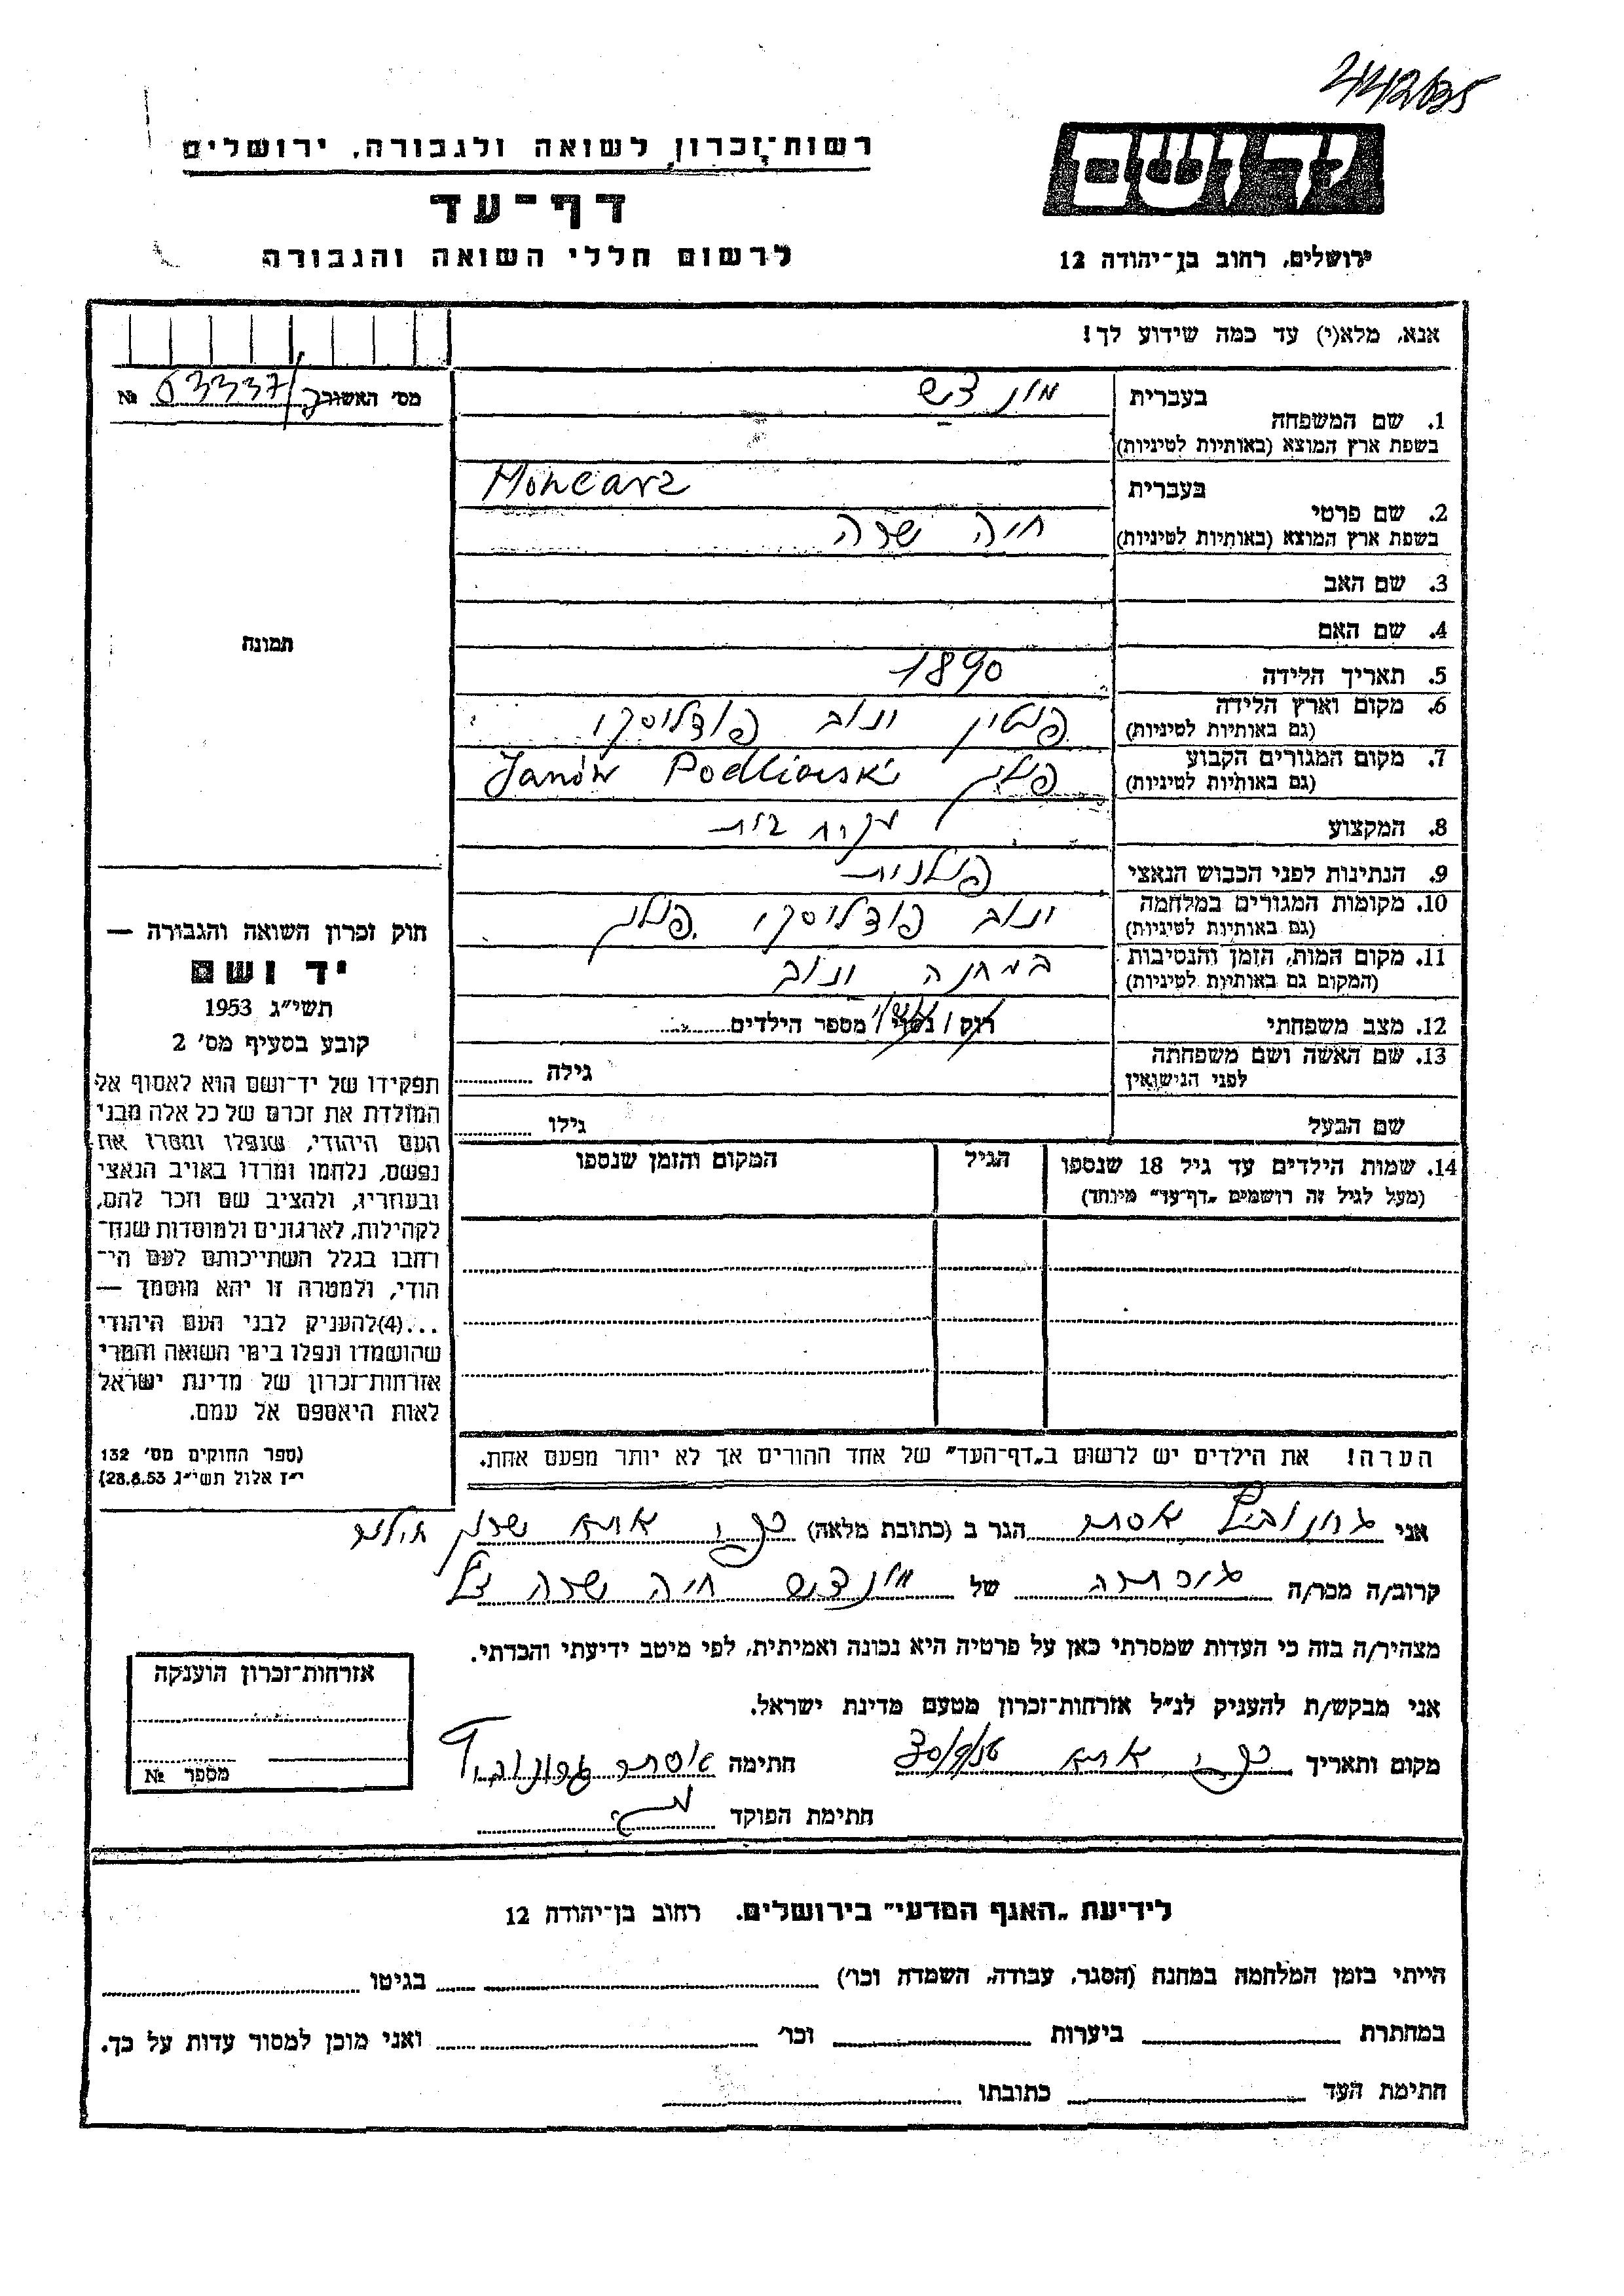 442635
רשות־זכרון לשואה ולגבורה, ירושלים
דף־עד
לרשום חללי השואה והגבורה
ירושלים, רחוב בן־יהודה 12
אנא, מלא(י) עד כמה שידוע לך!
מס׳ האשור № 63337
1. שם המשפחה
בעברית
בשפת ארץ המוצא (באותיות לטיניות)
Moncarz
2. שם פרטי
בעברית
חיה שרה
בשפת ארץ המוצא (באותיות לטיניות)
3. שם האב
4. שם האם
תמונה
5. תאריך הלידה 1890
6. מקום וארץ הלידה (גם באותיות לטיניות) ינוב פודליסקי
7. מקום המגורים הקבוע (גם באותיות לטיניות) פולין Janów Podliaski
8. המקצוע
9. הנתינות לפני הכבוש הנאצי פולנית
10. מקומות המגורים במלחמה (גם באותיות לטיניות) ינוב פודליסקי, פולין
11. מקום המות, הזמן והנסיבות (המקום גם באותיות לטיניות) במחנה ינוב
12. מצב משפחתי רוק / נשוי / מספר הילדים
13. שם האשה ושם משפחתה לפני הנישואין גילה
שם הבעל גילו
14. שמות הילדים עד גיל 18 שנספו (מעל לגיל זה רושמים „דף־עד״ מיוחד) הגיל המקום והזמן שנספו
חוק זכרון השואה והגבורה —
יד ושם
תשי״ג 1953
קובע בסעיף מס׳ 2
תפקידו של יד־ושם הוא לאסוף אל
המולדת את זכרם של כל אלה מבני
העם היהודי, שנפלו ומסרו את
נפשם, נלחמו ומרדו באויב הנאצי
ובעוזריו, ולהציב שם וזכר להם,
לקהילות, לארגונים ולמוסדות שנח־
רחבו בגלל השתייכותם לעם הי־
הודי, ולמטרה זו יהא מוסמך —
...(4)להעניק לבני העם היהודי
שהושמדו ונפלו בימי השואה והמרי
אזרחות־זכרון של מדינת ישראל
לאות היאספם אל עמם.
(ספר החוקים מס׳ 132
י״ז אלול תשי״ג 28.8.53)
הערה! את הילדים יש לרשום ב„דף־העד״ של אחד ההורים אך לא יותר מפעם אחת.
אני אסתר הגר ב (כתובת מלאה)
קרוב/ה מכר/ה של חיה שרה ז״ל
מצהיר/ה בזה כי העדות שמסרתי כאן על פרטיה היא נכונה ואמיתית, לפי מיטב ידיעתי והכרתי.
אני מבקש/ת להעניק לנ״ל אזרחות־זכרון מטעם מדינת ישראל.
מקום ותאריך חתימה אסתר
חתימת הפוקד
אזרחות־זכרון הוענקה
מספר №
לידיעת „האגף המדעי״ בירושלים, רחוב בן־יהודה 12
הייתי בזמן המלחמה במחנה (הסגר, עבודה, השמדה וכו׳) בגיטו
במחתרת ביערות וכו׳ ואני מוכן למסור עדות על כך.
חתימת העד כתובתו